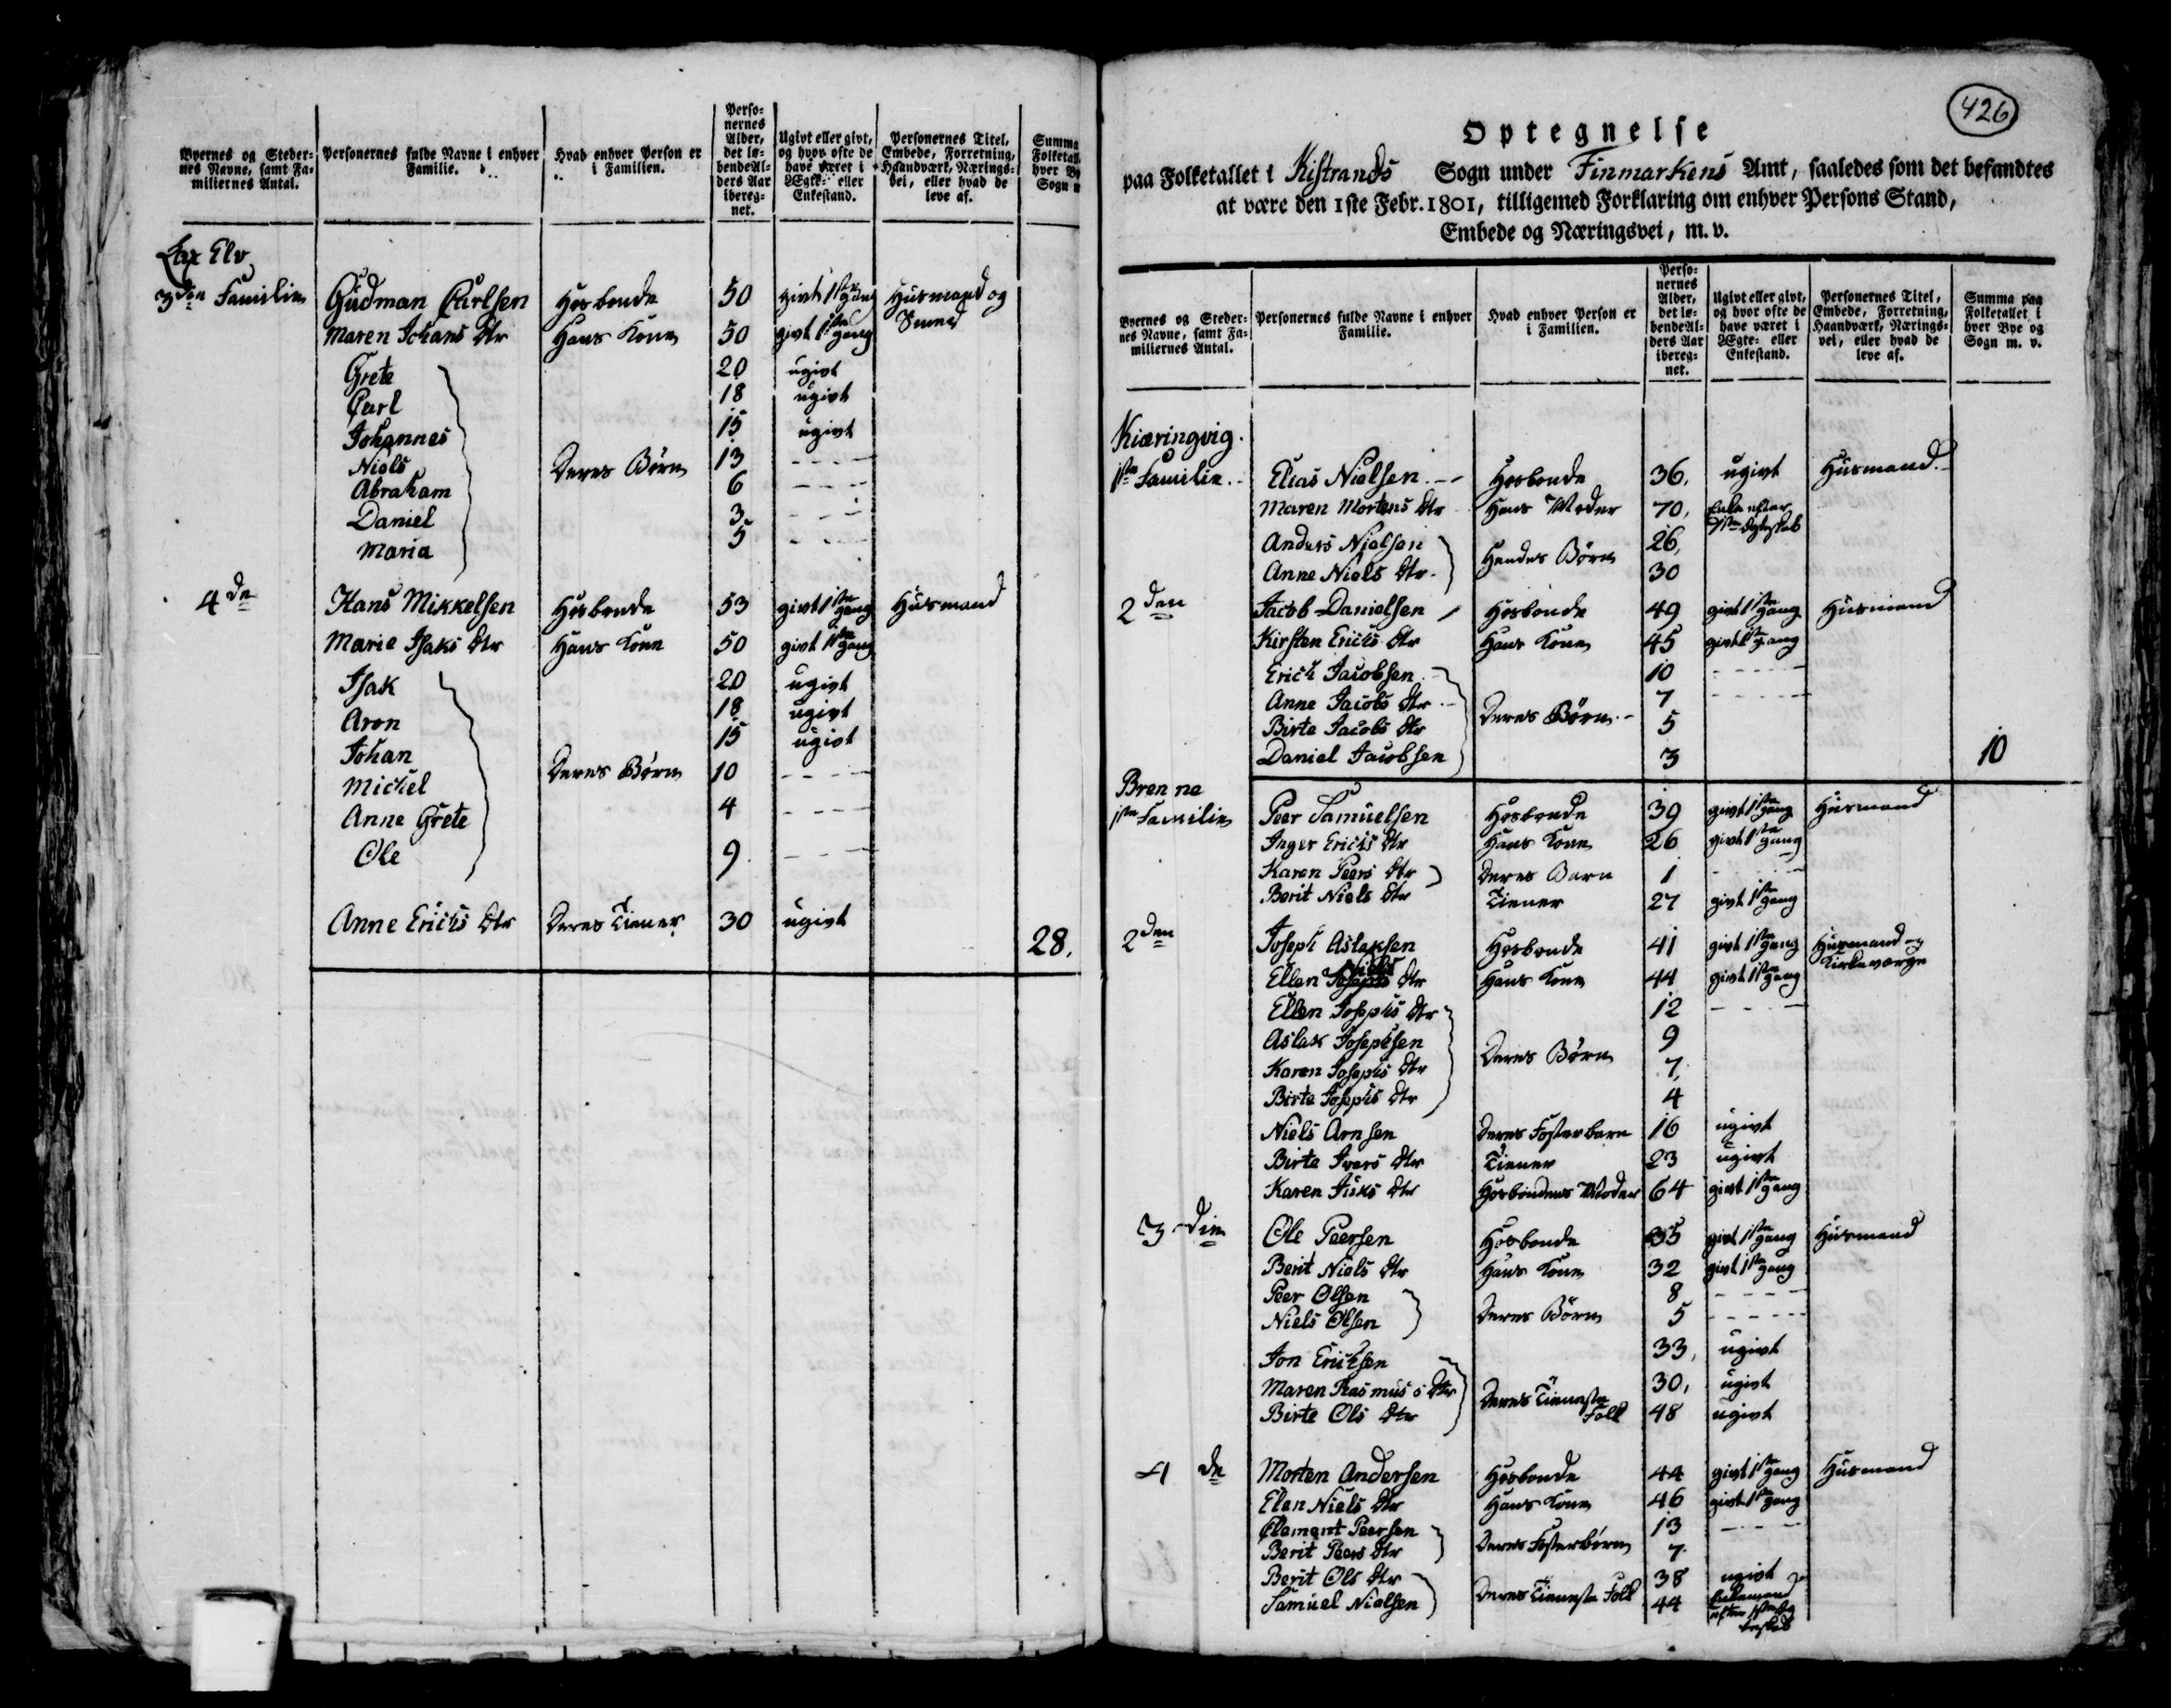 Byernes og Steder- nes Navne, samt Fa- miliernes Antal. | Personernes fulde Navne i enhver Familie. | Hvad enhver Person er i Familien. | Perso- nernes Alder, det lø- bende Al- ders Aar ibereg- net. | Ugivt eller givt, og hvor ofte de have været i Ægte- eller Enkestand. | Personernes Titel, Embede, Forretning, Haandværk, Nærings- vei, eller hvad de leve af. | Summa
Lax Elv
3die Familie | Gudman Carlsen | Hosbonde | 50 | givt 1ste gang | Husmand og
Maren Johans Dtr | Hans Kone | 50 | givt 1ste gang | Smed
Grete | 20 | ugivt
Carl | 18 | ugivt
Johannes | 15 | ugivt
Niels | Deres Børn | 13 | - - - -
Abraham | 6 | - - - -
Daniel | 3 | - - -
Maria | 5 | - - - -
4de | Hans Mikkelsen | Hosbonde | 53 | givt 1ste gang | Husmand
Marie Isaks Dtr | Hans Kone | 50 | givt 1ste gang
Isak | 20 | ugivt
Aron | 18 | ugivt
Johan | 15 | ugivt
Michel | Deres Børn | 10 | - - - -
Anne Grete | 4 | - - - -
Ole | 9 | - - - -
Anne Erichs Dtr | Deres Tiener | 30 | ugivt | 28.
426
Optegnelse
paa Folketallet i Kistrands Sogn under Finmarkens Amt, saaledes som det befandtes
at være den 1ste Febr. 1801, tilligemed Forklaring om enhver Persons Stand,
Embede og Næringsvei, m. v.
Byernes og Steder- nes Navne, samt Fa- miliernes Antal. | Personernes fulde Navne i enhver Familie. | Hvad enhver Person er i Familien. | Perso- nernes Alder, det lø- bende Al- ders Aar ibereg- net. | Ugivt eller givt, og hvor ofte de have været i Ægte- eller Enkestand. | Personernes Titel, Embede, Forretning, Haandværk, Nærings- vei, eller hvad de leve af. | Summa paa Folketallet i hver Bye og Sogn m. v.
Kiæringvig.
1ste Familie. | Elias Nielsen | Hosbonde | 36, | ugivt | Husmand.
Maren Mortens Dtr | Hans Moder | 70, | Enke efter 1ste Ægteskab
Anders Nielsen | Hendes Børn | 26,
Anne Niels Dtr. | 30
2den | Jacob Danielsen | Hosbonde | 49 | givt 1ste gang | Husmand
Kirsten Erichs Dtr | Hans Kone | 45 | givt 1ste gang
Erich Jacobsen | 10 | - - - - -
Anne Jacobs Dtr | Deres Børn | 7 | - - - - -
Birte Jacobs Dtr | 5
Daniel Jacobsen | 3 | 10
Brenne
1ste Familie | Peer Samuelsen | Hosbonde | 39 | givt 1ste gang | Husmand
Inger Erichs Dtr | Hans Kone | 26 | givt 1ste gang
Karen Peers Dtr | Deres Barn | 1 | - - -
Berit Niels Dtr | Tiener | 27 | givt 1ste gang
2den | Joseph Aslaksen | Hosbonde | 41 | givt 1ste gang | Husmand og
Ellen Niels Dtr | Hans Kone | 44 | givt 1ste gang | Kirkeværge
Ellen Josephs Dtr | 12 | - - - -
Aslak Josephsen | Deres Børn | 9
Karen Josephs Dtr | 7,
Birte Josephs Dtr | 4
Niels Arnsen | Deres Fosterbarn | 16 | ugivt
Birte Ivers Dtr | Tiener | 23 | ugivt
Karen Dtr | Hosbondens Moder | 64 | givt 1ste gang
3die | Ole Peersen | Hosbonde | 35 | givt 1ste gang | Husmand
Berit Niels Dtr | Hans Kone | 32 | givt 1ste gang
Peer Olsen | Deres Børn | 8 | - - - -
Niels Olsen | 5 | - - - - -
Jon Erichsen | 33, | ugivt
Maren Rasmus's Dtr | Deres Tieneste | 30, | ugivt
Birte Ols Dtr | Folk | 48 | ugivt
4de | Morten Andersen | Hosbonde | 44 | givt 1ste gang | Husmand
Elen Niels Dtr | Hans Kone | 46 | givt 1ste gang
Clement Peersen | Deres Fosterbørn | 13 | - - - -
Berit Peers Dtr | 7
Berit Ols Dtr | Deres Tieneste Folk | 38 | ugivt
Samuel Nielsen | 44 | Enkemand efter 1ste Ægteskab